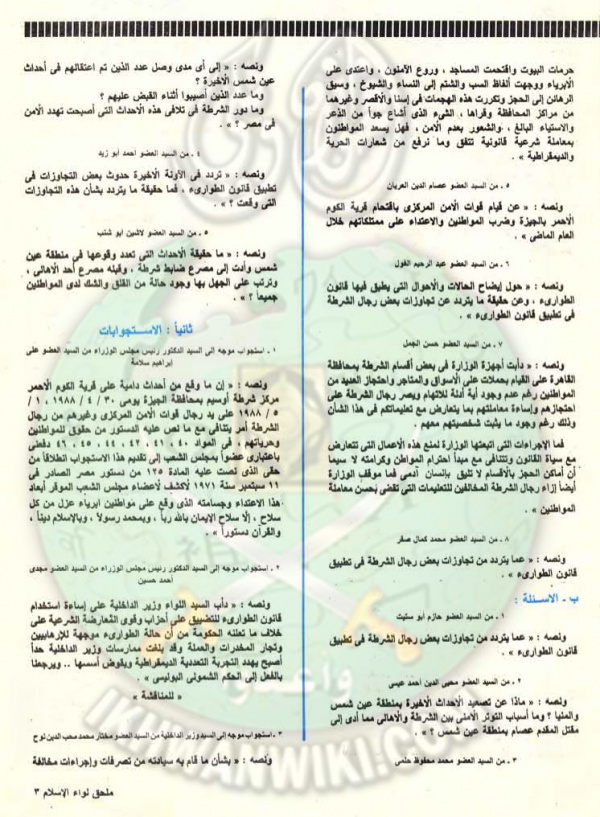 حرمات البيوت واقتحمت المساجد ، وروع الآمنون ، واعتدى على
الأبرياء ووجهت ألفاظ السب والشتم إلى النساء والشيوخ ، وسيق
الرهائن إلى الحجز وتكررت هذه الهجمات فى إسنا والأقصر وغيرهما
من مراكز المحافظة وقراها ، الشىء الذى أشاع جوا من الذعر
والاستياء البالغ ، والشعور بعدم الأمن ، فهل يسعد المواطنون
بمعاملة شرعية قانونية تتفق وما نرفع من شعارات الحرية
والديمقراطية »
٥ ـ من السيد العضو عصام الدين العريان
ونصه : « عن قيام قوات الأمن المركزى باقتحام قرية الكوم
الأحمر بالجيزة وضرب المواطنين والاعتداء على ممتلكاتهم خلال
العام الماضى » .
٦ ـ من السيد العضو عبد الرحيم الغول
ونصه : « حول إيضاح الحالات والأحوال التى يطبق فيها قانون
الطوارىء ، وعن حقيقة ما يتردد عن تجاوزات بعض رجال الشرطة
فى تطبيق قانون الطوارىء » .
٧ ـ من السيد العضو حسن الجمل
ونصه : « دأبت أجهزة الوزارة فى بعض أقسام الشرطة بمحافظة
القاهرة على القيام بحملات على الأسواق والمتاجر واحتجاز العديد من
المواطنين رغم عدم وجود أية أدلة للاتهام ويصر رجال الشرطة على
احتجازهم وإساءة معاملتهم بما يتعارض مع تعليماتكم فى هذا الشأن
وذلك رغم وجود ما يثبت شخصيتهم معهم .
فما الإجراءات التى اتبعتها الوزارة لمنع هذه الأعمال التى تتعارض
مع سيادة القانون وتتنافى مع مبدأ احترام المواطن وكرامته لا سيما
أن أماكن الحجز بالأقسام لا تليق بإنسان آدمى فما موقف الوزارة
أيضا إزاء رجال الشرطة المخالفين للتعليمات التى تقضى بحسن معاملة
المواطنين » .
٨ ـ من السيد العضو محمد كمال صقر
ونصه : « عما يتردد من تجاوزات بعض رجال الشرطة فى تطبيق
قانون الطوارىء » .
ب ـ الأسئلة :
١ ـ من السيد العضو حازم أبو ستيت
ونصه : « عما يتردد من تجاوزات بعض رجال الشرطة فى تطبيق
قانون الطوارىء » .
٢ ـ من السيد العضو محيى الدين أحمد عيسى
ونصه : « ماذا عن تصعيد الأحداث الأخيرة بمنطقة عين شمس
والمنيا ؟ وما أسباب التوتر الأمنى بين الشرطة والأهالى مما أدى إلى
مقتل المقدم عصام بمنطقة عين شمس ؟ » .
٣ ـ من السيد العضو محمد محفوظ حلمى
ونصه : « إلى أى مدى وصل عدد الذين تم اعتقالهم فى أحداث
عين شمس الأخيرة ؟
وما عدد الذين أصيبوا أثناء القبض عليهم ؟
وما دور الشرطة فى تلافى هذه الأحداث التى أصبحت تهدد الأمن
فى مصر ؟ » .
٤ ـ من السيد العضو أحمد أبو زيد
ونصه : « تردد فى الآونة الأخيرة حدوث بعض التجاوزات فى
تطبيق قانون الطوارىء ، فما حقيقة ما يتردد بشأن هذه التجاوزات
التى وقعت ؟ » .
٥ ـ من السيد العضو لاشين أبو شنب
ونصه : « ما حقيقة الأحداث التى تعدد وقوعها فى منطقة عين
شمس وأدت إلى مصرع ضابط شرطة ، وقبله مصرع أحد الأهالى ،
وترتب على الجهل بها وجود حالة من القلق والشك لدى المواطنين
جميعاً ؟ » .
ثانياً : الاستجوابات
١ ـ استجواب موجه إلى السيد الدكتور رئيس مجلس الوزراء من السيد العضو على
إبراهيم سلامة
ونصه : « إن ما وقع من أحداث دامية على قرية الكوم الأحمر
مركز شرطة أوسيم بمحافظة الجيزة يومى ٣٠ / ٤ / ١٩٨٨ ، ١ /
٥ / ١٩٨٨ على يد رجال قوات الأمن المركزى وغيرهم من رجال
الشرطة أمر يتنافى مع ما نص عليه الدستور من حقوق للمواطنين
وحرياتهم ، فى المواد ٤٠ ، ٤١ ، ٤٢ ، ٤٤ ، ٤٥ ، ٤٦ دفعنى
باعتبارى عضواً بمجلس الشعب إلى تقديم هذا الاستجواب انطلاقاً من
حقى الذى نصت عليه المادة ١٢٥ من دستور مصر الصادر فى
١١ سبتمبر سنة ١٩٧١ لأكشف لأعضاء مجلس الشعب الموقر أبعاد
هذا الاعتداء وجسامته الذى وقع على مواطنين أبرياء عزل من كل
سلاح ، إلا سلاح الإيمان بالله رباً ، وبمحمد رسولاً ، وبالإسلام ديناً ،
والقرآن دستوراً » .
٢ ـ استجواب موجه إلى السيد الدكتور رئيس مجلس الوزراء من السيد العضو مجدى
أحمد حسين
ونصه : « دأب السيد اللواء وزير الداخلية على إساءة استخدام
قانون الطوارىء للتضييق على أحزاب وقوى المعارضة الشرعية على
خلاف ما تعلنه الحكومة من أن حالة الطوارىء موجهة للإرهابيين
وتجار المخدرات والعملة وقد بلغت ممارسات وزير الداخلية حداً
أصبح يهدد التجربة التعددية الديمقراطية ويقوض أسسها .. ويرجعنا
بالفعل إلى الحكم الشمولى البوليسى »
« للمناقشة »
٣ ـ استجواب موجه إلى السيد وزير الداخلية من السيد العضو مختار محمد محب الدين نوح
ونصه : « بشأن ما قام به سيادته من تصرفات وإجراءات مخالفة
ملحق لواء الإسلام ٣
وأعدوا
IKHWANWIKI.COM